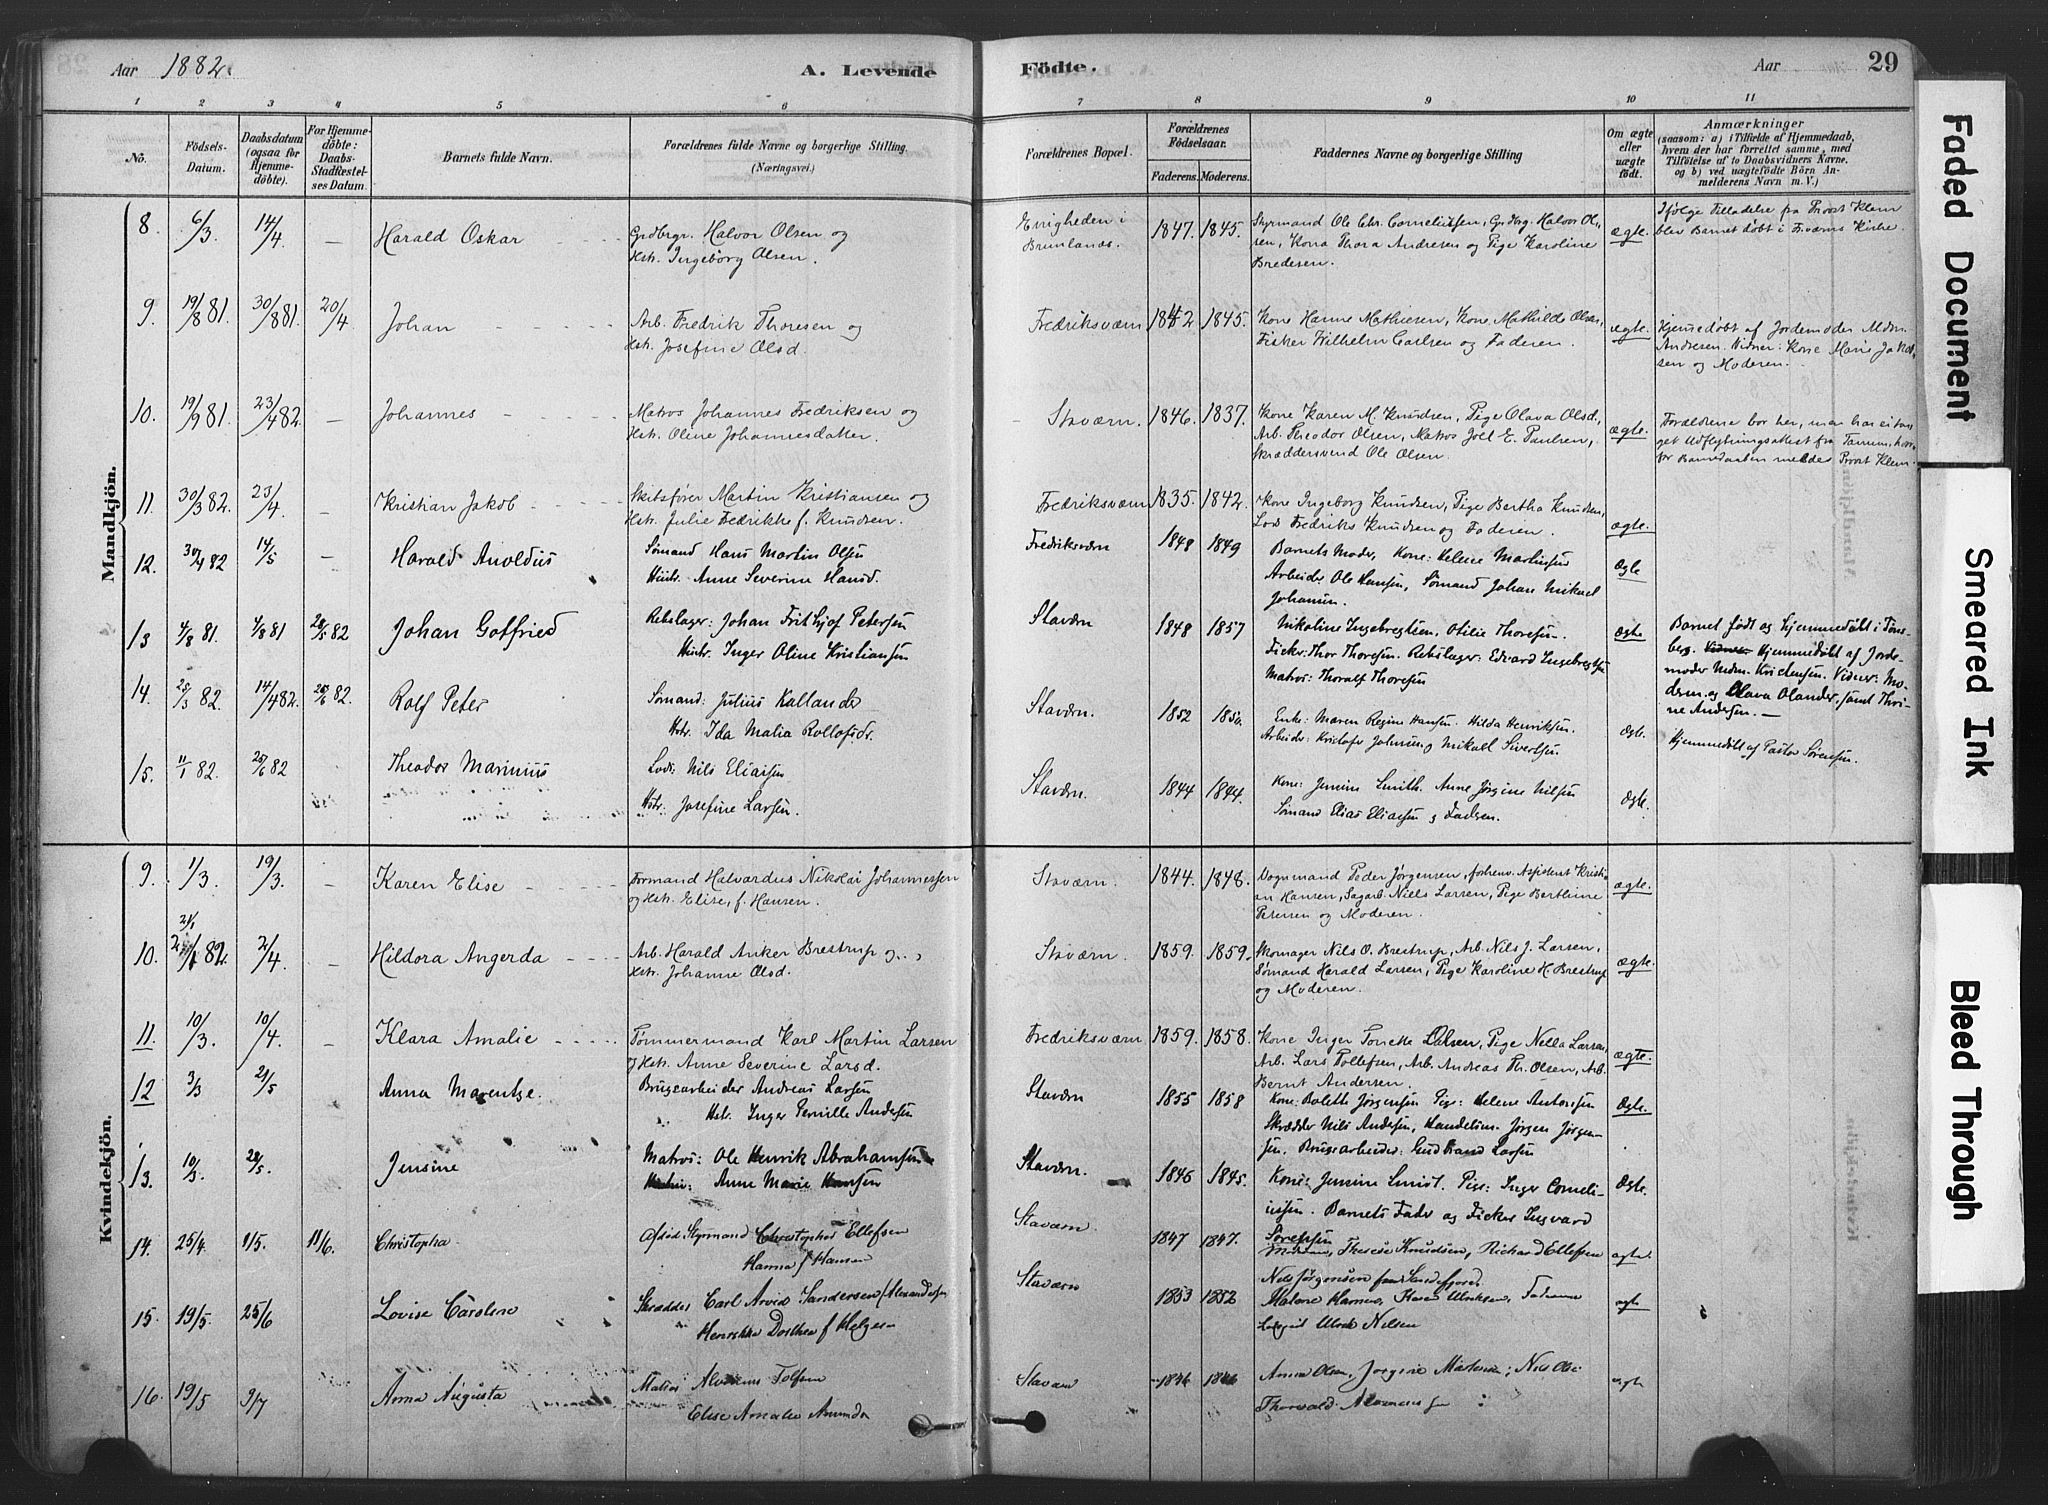 Aar 1882.
A. Levende
Fødte.
Aar
29
1 2 3 4 5 6 7 8 9 10 11
No.
Fødsels-Datum.
Daabsdatum (ogsaa for Hjemmedøbte).
For Hjemmedøbte: Daabs-Stadfæstelses Datum.
Barnets fulde Navn.
Forældrenes fulde Navne og borgerlige Stilling. (Næringsvei.)
Forældrenes Bopæl.
Forældrenes Fødselsaar.
Faderens. Moderens.
Faddernes Navne og borgerlige Stilling
Om ægte eller uægte født.
Anmærkninger
(saasom: a) i Tilfælde af Hjemmedaab,
hvem der har forrettet samme, med
Tilføielse af to Daabsvidners Navne.
og b) ved uægtefødte Børn Anmelderens Navn m. V.)
Mandkjön.
8. 6/3. 14/4. — Harald Oskar Grdbrgr. Halvor Olsen og Evigheden i 1847. 1845. Styrmand Ole Chr. Corneliussen, Grdbrg. Halvor Ol- ægte. Ifølge Tilladelse fra Provst Klem
Hstr. Ingeborg Olsen. Brunlanes. sen, Kona Thora Andresen og Pige Karoline blev Barnet døbt i Fredriksværns Kirke
Bredesen.
9. 19/8 81. 30/8 81. 20/4 Johan Arb. Fredrik Thoresen og Fredriksværn 1842 1845. Kone Hanne Mathiesen, Kone Mathilde Olsen, ægte. Hjemmedøbt af Jordemoder Mdm.
Hstr. Josefine Olsd. Fisker Wilhelm Carlsen og Faderen. Andresen. Vidner: Kone Marie Jakob-
sen og Moderen.
10. 19/9 81. 23/4 82. — Johannes Matros Johannes Fredriksen og Staværn. 1846. 1837. Kone Karen M. Knudsen, Pige Olava Olsd., ægte. Forældrene bor her, men har ei tag-
Hstr. Oline Johannesdatter. Arb. Theodor Olsen, Matros Joel E. Paulsen, get Udflytningsattest fra Tanum, hvor-
Skræddersvend Ole Olsen. for Barnedaaben meldes Provst Klem.
11. 30/3 82. 23/4. — Kristian Jakob Skibsfører Martin Kristiansen og Fredriksværn 1835. 1842. Kone Ingeborg Knudsen, Pige Bertha Knudsen, ægte.
Hstr. Julie Fredrikke f. Knudsen. Lods Fredriks Knudsen og Faderen.
12. 30/4 82 14/5 — Harald Anoldius Sømand Hans Martin Olsen Fredriksværn 1848 1849 Barnets Moder, Kone: Helene Martinsen Ægte
Hustr. Anne Severine Hansd. Arbeider Ole Hansen, Sømand Johan Mikael
Johansen.
13 4/8 81. 4/8 81 28/5 82 Johan Gotfried Rebslager: Johan Frithjof Petersen Staværn 1848 1857 Nikoline Ingebregtsen, Otilie Thoresen. Ægte Barnet født og hjemmedøbt i Tøns-
Hustr. Inger Oline Kristiansen Fisker: Thor Thoresen. Rebslager: Edvard Ingebregtsen berg. Hjemmedøbt af Jorde-
Matros: Thoralf Thoresen moder Mdm. Kristensen. Vidner: Mo-
14. 25/3 82 14/4 82. 25/6 82. Rolf Peter Sømand: Julius Kallander Staværn. 1852 1850. Enke: Maren Regine Hansen. Hilda Henriksen. Ægte. deren og Olava Olander, samt Thri-
Hstr. Ida Malia Rollofsdr. Arbeider: Kristofer Johnsen, Mikael Sivertsen. ne Andersen. —
Hjemmedøbt af Pastor Sørensen.
15. 11/1 82. 25/6 82 Theodor Marinius Lods: Nils Eliassen Staværn. 1844 1844. Kone: Jensine Smith. Anne Jørgine Nilsen Ægte.
Hstr. Josefine Larsen. Sømand Elias Eliassen og Faderen.
Kvindekjön.
9. 1/3. 19/3. — Karen Elise Formand Halvardus Nikolai Johannessen Staværn. 1844. 1848. Vognmand Peder Jørgensen, forhenv. Assistent Kristi- ægte.
og Hstr. Elise, f. Hansen. an Hansen, Sagarb. Niels Larsen, Pige Berthine
Petersen og Moderen.
10. 21/1 82. 2/4. — Hildora Angerda Arb. Harald Anker Brestrup og Staværn. 1859. 1859. Skomager Nils O. Brestrup, Arb. Nils J. Larsen, ægte.
Hstr. Johanne Olsd. Sømand Harald Larsen, Pige Karoline H. Brestrup
og Moderen.
11. 10/3. 10/4. — Klara Amalie Tømmermand Karl Martin Larsen Fredriksværn 1859. 1858. Kone Inger Tomette Olsen, Pige Nella Larsen, ægte.
og Hstr. Anne Severine Larsd. Arb. Lars Tollefsen, Arb. Andreas Th. Olsen, Arb.
Bernt Andersen.
12 3/3 21/5 Anna Marentze. Brugsarbeider Andreas Larsen Staværn 1855 1858 Kone: Bolette Jørgensen Pige: Helene Antonsen Ægte.
Hstr. Inger Pernille Andersen Skrædder Nils Andersen, Handelsm. Jørgen Jørgen-
sen. Brugsarbeider: Gudbrand Larsen
13. 10/3. 28/5. Jensine Matros: Ole Henrik Abrahamsen Staværn. 1846 1845. Kone: Jensine Smidt. Pige: Inger Corneli- Ægte.
Anne Marie Hansen ussen. Barnets Fader og Fisker Ingvard
Sørensen
14. 25/4. 1/5. 11/6. Christopha Afdød Styrmand Christopher Ellefsen Staværn 1847 1847. Therese Knudsen, Richard Ellefsen ægte.
Hanna f Hansen Nils Jørgensen fra Sandefjord.
15. 19/5. 25/6 Lovise Caroline Skrædder Carl Arvid Sandersen (Alexandersen Staværn 1853 1852 ægte
Henrikke Dorthea f Helgesen Nilsen
16. 19/5 9/7 Anna Augusta Matros Staværn 1846 1846 Anna Olsen, Jørgine
Elise Amalie Thorvald
Faded Document
Smeared Ink
Bleed Through